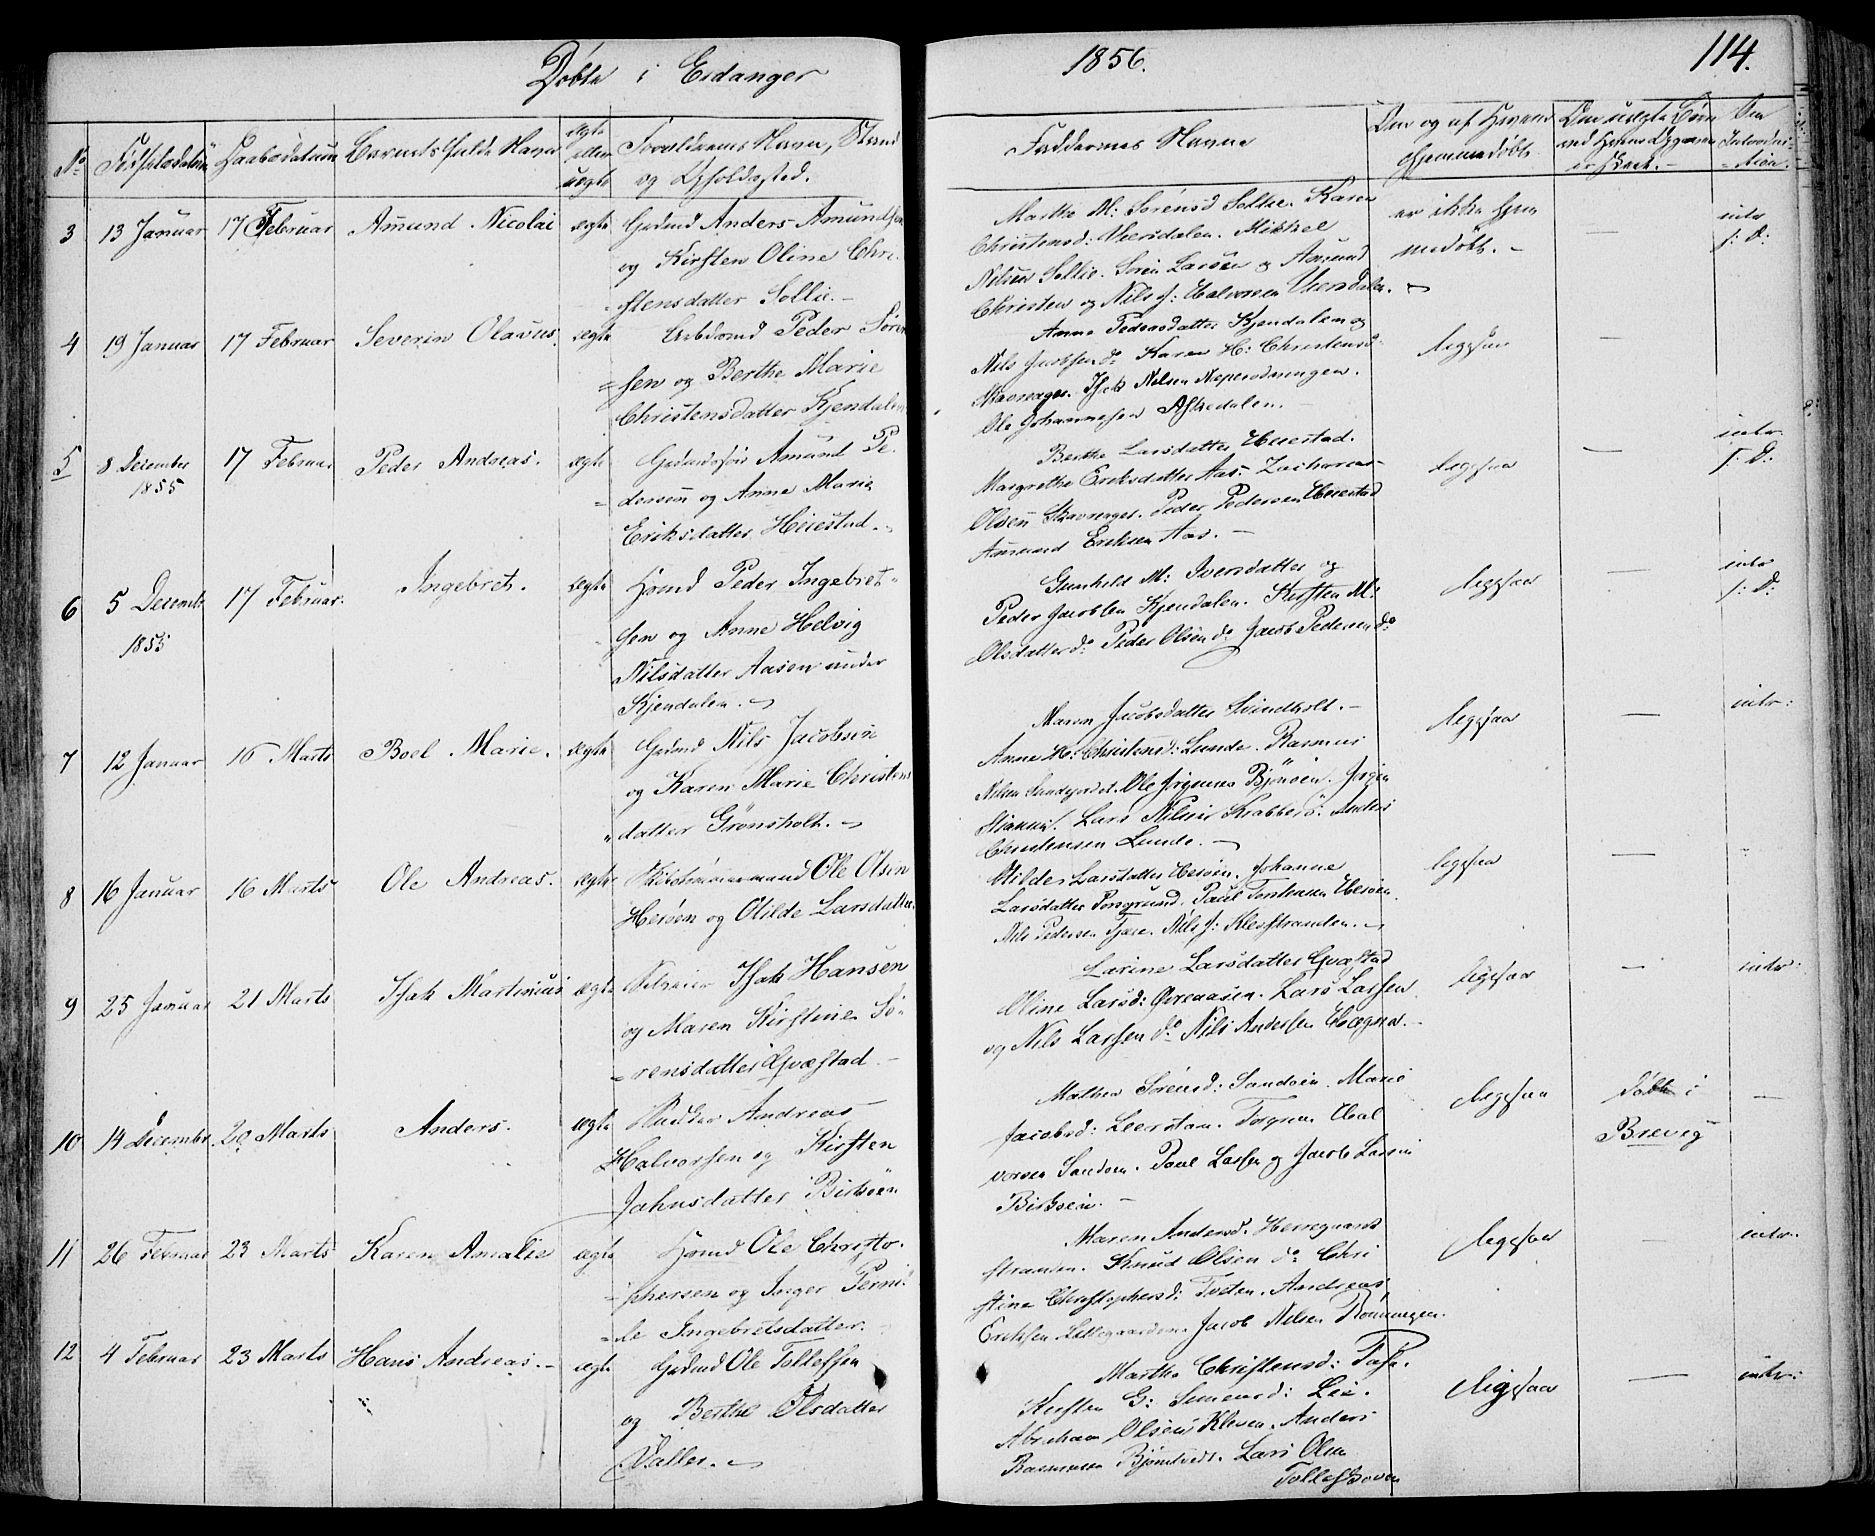 Døbte i Eidanger
1856.
114.
No
Daabsdatum
Barnets fulde Navn
ægte eller uægte
Forældrenes Navn, Stand
og Opholdssted.
Faddernes Navne
Om og af Hvem
Hjemmedøbt.
3 13 Januar 17 Februar Amund Nicolai ægte Gbrmd Anders Amundsen
og Kirsten Oline Chri-
stensdatter Sollie.
Marthe M: Sørensd Sollie. Karen
Christensd: Versdalen. Mikkel
Nilsen Sollie. Søren Larsen og Amund
Christen og Nils J: Halvorsen Versdalen.
er ikke hjem
medøbt.
—
intr
4 19 Januar 17 Februar Severin Olavus. ægte Arbdsmd Peder Søren
=sen og Berthe Marie
Christensdatter Kjendalen
Anne Pedersdatter Kjendalen og
Nils Jacobsen do Karen H: Christensd:
Isak Nilsen
Ole Johannesen Askedalen.
ligesaa
—
5 8 December
1855
17 Februar Peder Andreas. ægte Amund Pe
=dersen og Anne Marie
Eriksdatter Heiestad.
Berthe Larsdatter Heiestad.
Margrethe Eriksdatter Aas. Zacharias
Olsen Skavrager. Peder Pedersen Heiestad
Amund Eriksen Aas.
ligesaa
—
intr
6 5 Decembr
1855
17 Februar. Ingebret. ægte Hsmd Peder Ingebret-
sen og Anne Helvig
Nilsdatter Aasen under
Kjendalen.
Gunhild M: Iversdatter og
Peder Jacobsen Kjendalen. Kirsten M:
Olsdatter do Peder Olsen do Jacob Pedersen do
ligesaa
—
intr
7 12 Januar 16 Marts Boel Marie. ægte Gbrmd Nils Jacobsen
og Karen Marie Christens
datter Grønsholt.
Maren Jacobsdatter Svindholt.
Anne M: Christensd: Lunde. Rasmus
Nilsen Sandfjordet. Ole Bjønnes. Jørgen
Lars Nilsen Krabberø. Anders
Christensen Lunde.
ligesaa
—
intr:
8 16 Januar 16 Marts Ole Andreas. ægte Skibstømmermand Ole Olsen
Herøen og Otilde Larsdatter
Otilde Larsdatter Herøen. Johanne
Larsdatter Porsgrund. Paul Torstensen Herøen.
Nils Pedersen Nils J: Klevstranden.
ligesaa
—
9 25 Januar 21 Marts Isak Martinius ægte Selveier Isak Hansen
og Maren Kirstine Sø-
=rensdatter Qvæstad
Larine Larsdatter Qvæstad
Oline Larsd: Lars Larsen
og Nils Larsen do Nils Andersen
ligesaa
—
intr:
10 14 Decembr. 20 Marts Anders. ægte Andreas
Halvorsen og Kirsten
Jahnsdatter Birkøen
Mathea Sørensd: Sandøen. Marie
Jacobsd: Torgrim Hal
vorsen Sandøen. Paul Larsen og Jacob Larsen
Birkøen.
ligesaa
Døbt i
Brevig
—
11 26 Februar 23 Marts Karen Amalie ægte Hsmd Ole Christo-
phersen og Inger Perni-
=le Ingebretsdatter.
Maren Andersd. Herregaards
stranden. Knud Olsen do Chri
stine Christophersd: Tveten. Andreas
Eriksen Jacob Nilsen Rønningen.
ligesaa
—
intr.
12 4 Februar 23 Marts Hans Andreas. ægte Gbrmd Ole Tollefsen
og Berthe Olsdatter
Valler.
Marthe Christensd:
Kirsten G: Simensd: Lie.
Abraham Olsen Kleven. Anders
Rasmussen Bjørntvedt. Lars Olsen
ligesaa
—
intr: